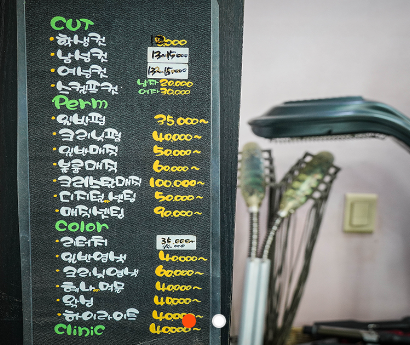 CUT
• 학생컷
• 남성컷 13~15,000
• 여성컷 13~15,000
• 스켈프컷 남자 20,000
여자 30,000
Perm
• 일반펌 35,000~
• 크리닉펌 40,000~
• 일반매직 50,000~
• 볼륨매직 60,000~
• 크리스탈매직 100,000~
• 디지털셋팅 50,000~
• 매직셋팅 90,000~
Color
• 리터치
• 일반염색 40,000~
• 크리닉염색 60,000~
• 40,000~
• 40,000~
• 하이라이트 40,000~
Clinic 40,000~